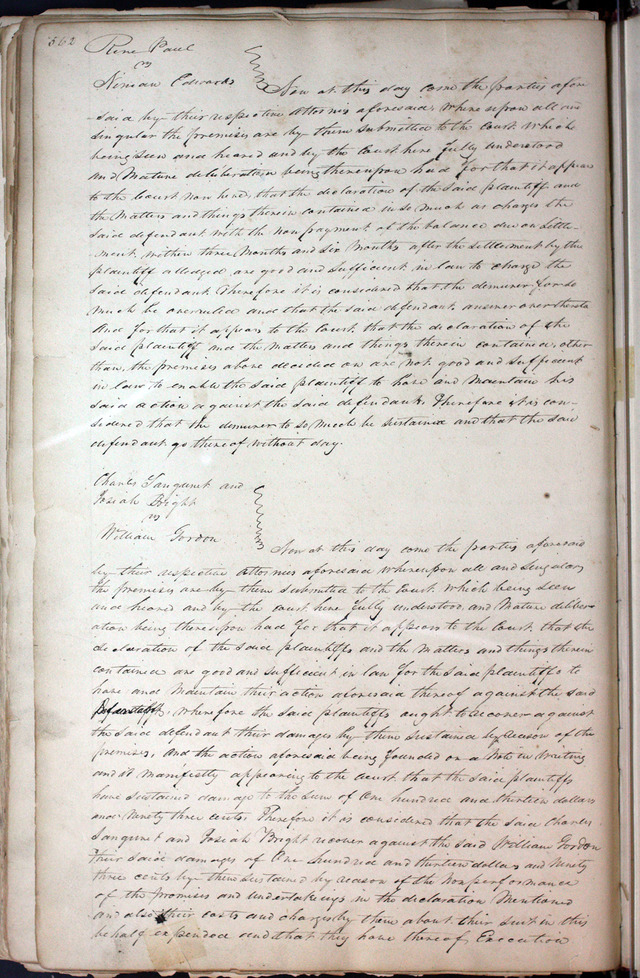 562
Rene Paul
vs
Ninian Edwards
Now at this day come the parties afore
said by their respective attornies aforesaid, whereupon all and
singular the premises are by them submitted to the court which
being seen and heard and by the court here fully understood
and Mature deliberation being thereupon had for that it appears
to the Court now here, that the declaration of the said plaintiff and
the Matters and things therein contained in so much as charges the
said defendant with the non payment of the balance due on Settle-
-ment, within three Months and six Months after the settlement by the
plaintiff alledged are good and sufficient in law to charge the
said defendant Therefore it is considered that the demurer for so
much be overruled and that the said defendant answer over thereto
And for that it appears to the Court that the declaration of the
said plaintiff and the Matters and things therein contained, other
than the premises above decided on are not good and sufficient
in law to enable the said plaintiff to have and Maintain his
said action against the said defendant. Therefore it is con-
-sidered that the demurer to so much be sustained and that the said
defendant go thereof without day.
Charles Sanguinet and
Josiah Bright
vs
William Gordon
Now at this day come the parties aforesaid
by their respective attornies aforesaid whereupon all and singular
the premises are by them submitted to the Court which being seen
and heard and by the court here fully understood, and Mature deliber-
ation being thereupon had for that it appears to the Court, that the
declaration of the said plaintiffs and the Matters and things therein
contained are good and sufficient in law for the said plaintiffs to
have and Maintain their action aforesaid thereof against the said
wherefore the said plaintiffs ought to recover against
the said defendant their damages by them sustained by reason of the
premises, and the action aforesaid being founded on a Note in Writing
and it Manifestly appearing to the court that the said plaintiffs
have sustained damage to the sum of One hundred and thirteen dollars
and Ninety three cents. Therefore it is considered that the said Charles
Sanguinet and Josiah Bright recover against the said William Gordon
their said damages of One hundred and thirteen dollars and Ninety
three cents by them sustained by reason of the Non performance
of the Promises and undertakings in the declaration Mentioned
and also their costs and charges by them about their suit in this
behalf expended and that they have thereof Execution